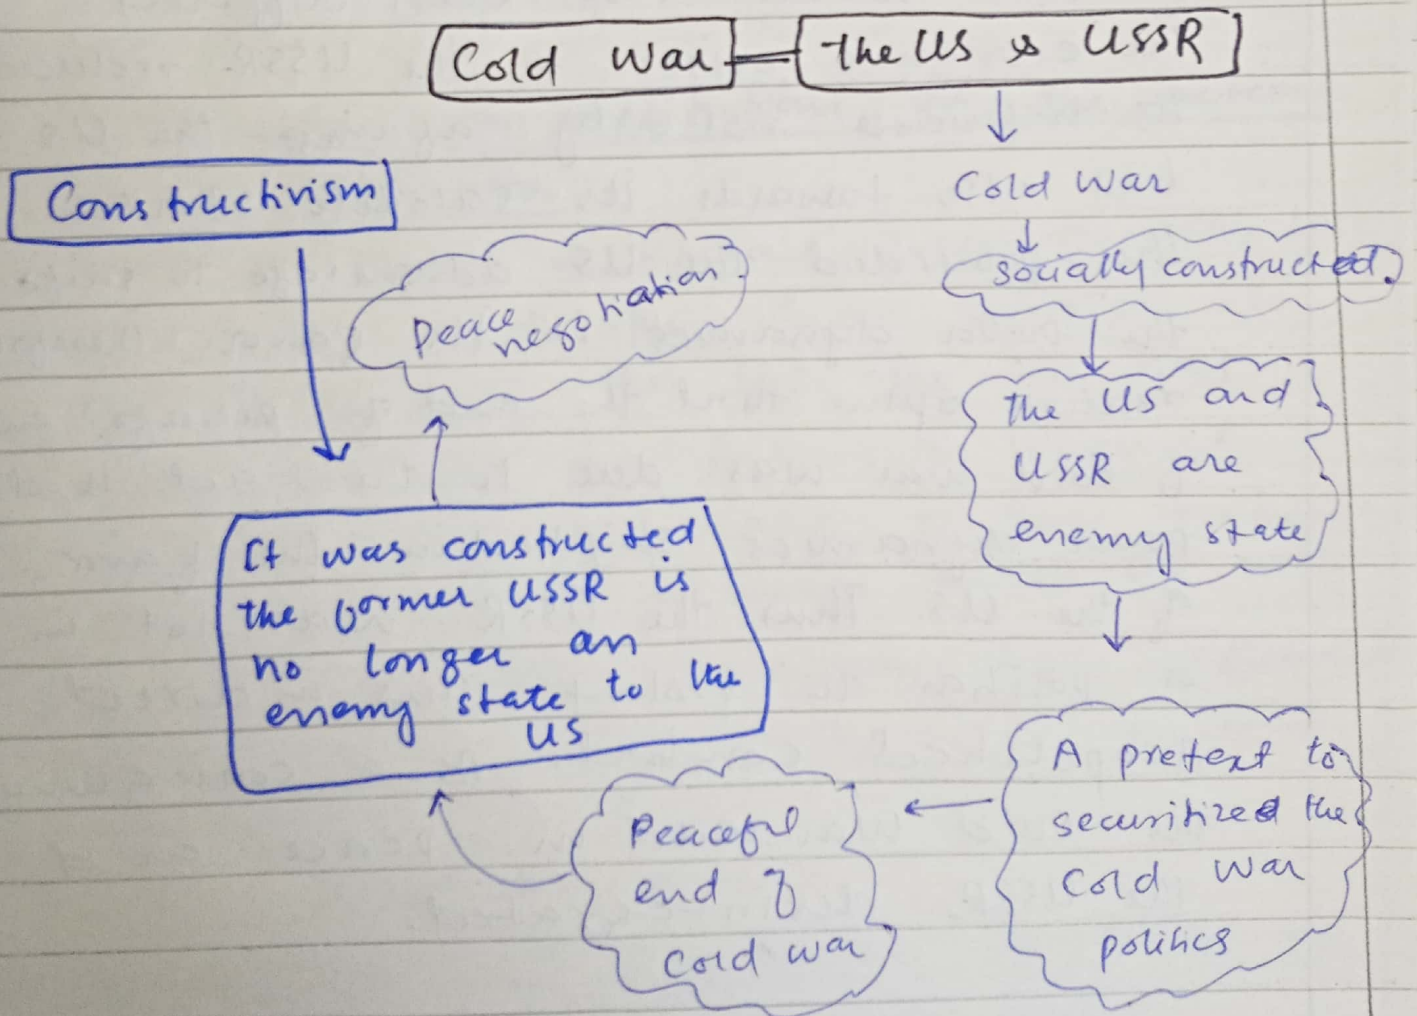 Cold War
The US & USSR
Cold War
socially constructed.
The US and
USSR are
enemy state
A pretext to
securitized the
Cold War
politics
Peaceful
end of
Cold War
Constructivism
It was constructed
the former USSR is
no longer an
enemy state to the
US
Peace
negotiation.